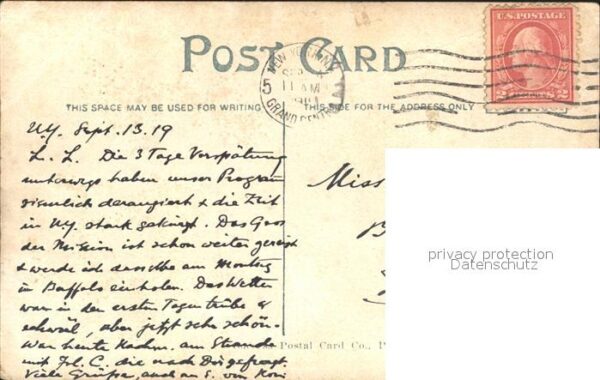 POST CARD
U.S. POSTAGE
2 CENTS 2
NEW YORK, N.Y.
SEP
11 AM
5
GRAND CENTRAL
THIS SPACE MAY BE USED FOR WRITING
THIS SIDE FOR THE ADDRESS ONLY
N.Y. Sept. 13. 19
L. L. Die 3 Tage Verspätung
unterwegs haben unser Program
ziemlich derangiert & die Zeit
in N.Y. stark gekürzt. Das Gros
der Mission ist schon weiter gereist
& werde ich dieselbe am Montag
in Buffalo einholen. Das Wetter
war in den ersten Tagen trübe &
schwül, aber jetzt sehr schön.
War heute Nachm. am Strande
mit Frl. C. die nach Dir gefragt.
Viele Grüsse, auch an S. von
Miss
privacy protection
Datenschutz
Postal Card Co.,